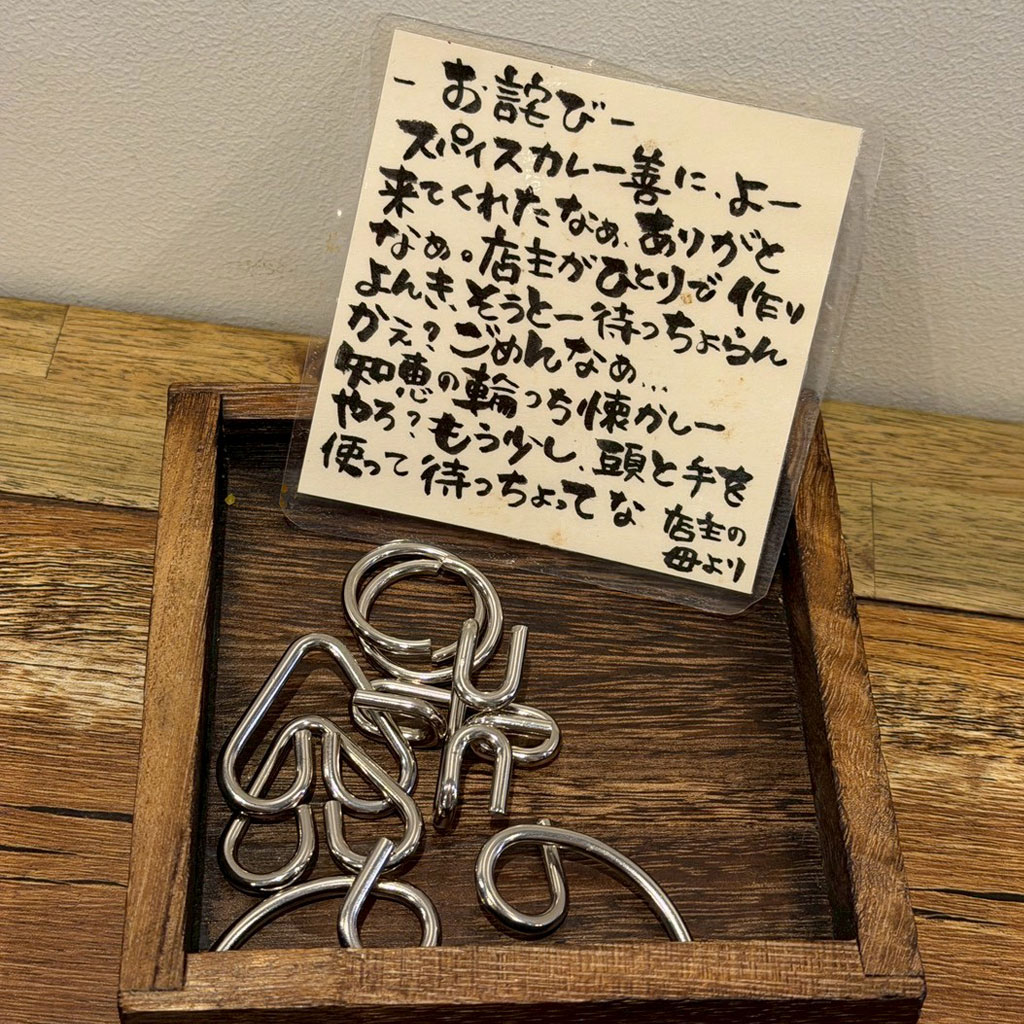 - お詫び -
スパイスカレー善に、よー
来てくれたなぁ、ありがと
なぁ。店主がひとりで作り
よんき、そうとー待っちょらん
かえ?ごめんなぁ...
知恵の輪っち懐かしー
やろ?もう少し、頭と手を
使って待っちょってな
店主の
母より